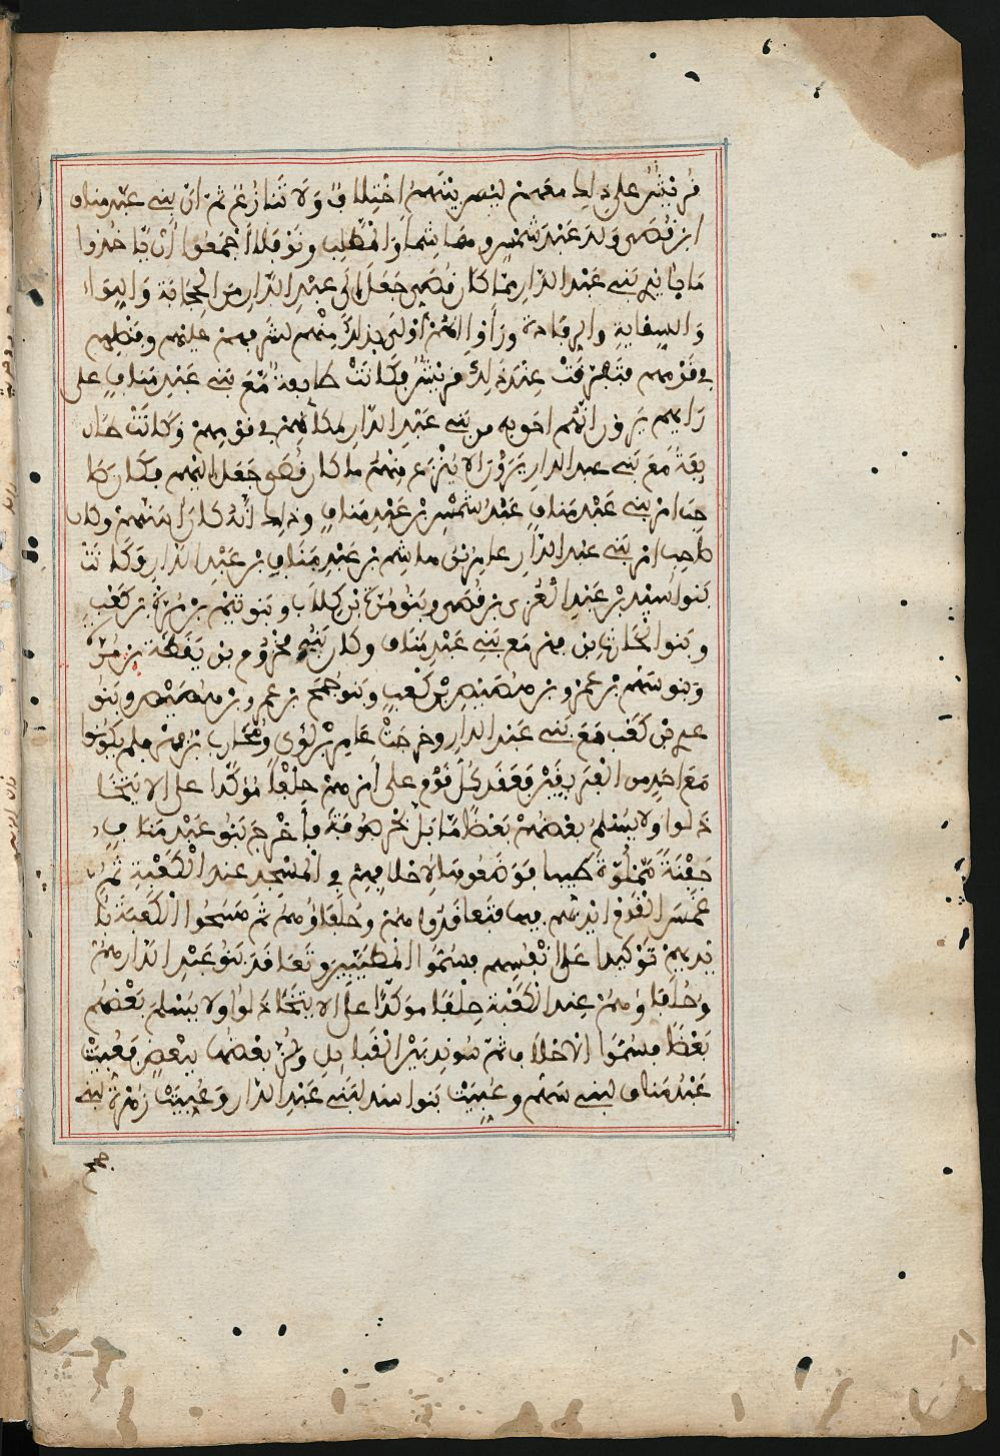 قريش على ذلك معهم ليس بينهم اختلاف ولا تنازع ثم ان بني عبد مناف
ابن قصي ولد عبد شمس وهاشما والمطلب ونوفلا أجمعوا أن يأخذوا
ما بأيدي بني عبد الدار مما كان قصي جعل إلى عبد الدار من الحجابة واللواء
والسقاية والرفادة ورأوا انهم أولى بذلك منهم لشرفهم عليهم وفضلهم
في قومهم فتفرقت عند ذلك قريش فكانت طايفة مع بني عبد مناف على
رايهم يرون انهم احق به من بني عبد الدار لمكانهم في قومهم وكانت طا
يفة مع بني عبد الدار يرون الا ينزع منهم ما كان قصي جعل اليهم فكان صا
حب امر بني عبد مناف عبد شمس بن عبد مناف وذلك أنه كان اسنهم وكان
صاحب امر بني عبد الدار عامر بن هاشم بن عبد مناف بن عبد الدار وكانت
بنوا أسد بن عبد العزى بن قصي وبنو زهرة بن كلاب وبنو تيم بن مرة بن كعب
وبنوا الحارث بن فهر مع بني عبد مناف وكان بنو مخزوم بن يقظة بن مرة
وبنو سهم بن عمرو بن هصيص بن كعب وبنو جمح بن عمرو بن هصيص وبنو
عدي بن كعب مع بني عبد الدار وخرجت عامر بن لؤي ومحارب بن فهر فلم يكونوا
مع احد من الفريقين فعقد كل قوم على أمرهم حلفا مؤكدا على الا يتخا
ذلوا ولا يسلم بعضهم بعضا ما بل بحر صوفة فأخرج بنو عبد مناف
جفنة مملوة طيبا فوضعوها لاحلافهم في المسجد عند الكعبة ثم
غمس القوم ايديهم فيها فتعاقدوا هم وحلفاؤهم ثم مسحوا الكعبة بأ
يديهم توكيدا على أنفسهم فسموا المطيبين وتعاقد بنو عبد الدار هم
وحلفاؤهم عند الكعبة حلفا موكدا على الا يتخاذلوا ولا يسلم بعضهم
بعضا فسموا الاحلاف ثم سوند بين القبايل ولز بعضها ببعض فعبيت
عبد مناف لبني سهم وعبيت بنوا اسد لبني عبد الدار وعبيت زهرة لبني
جمح